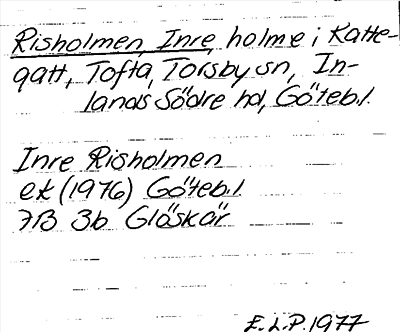 Risholmen, Inre, holme i Katte-
gatt, Tofta, Torsby sn, In-
lands Södre hd, Göteb.l.
Inre Risholmen
ek (1976) Göteb.l
7B 3b Glöskär
E.L.P. 1977